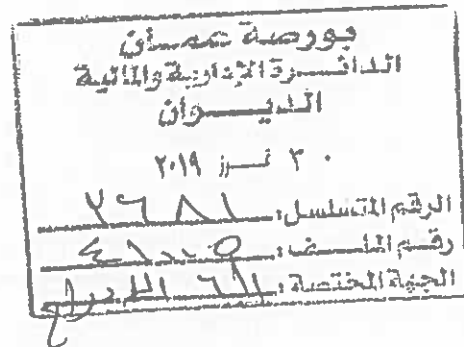 بورصة عمان
الدائرة الإدارية والمالية
الديوان
٣٠ تموز ٢٠١٩
الرقم المتسلسل: ٢٦٨١
رقم الملف:
الجهة المختصة: